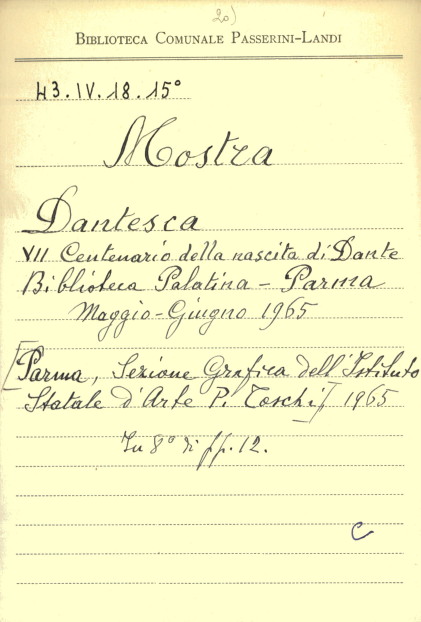 20)
BIBLIOTECA COMUNALE PASSERINI-LANDI
43.IV.18.15°
Mostra
Dantesca
VII Centenario della nascita di Dante
Biblioteca Palatina - Parma
Maggio-Giugno 1965
[Parma, Sezione Grafica dell'Istituto
Statale d'Arte P. Toschi] 1965
In 8° di ff. 12.
C